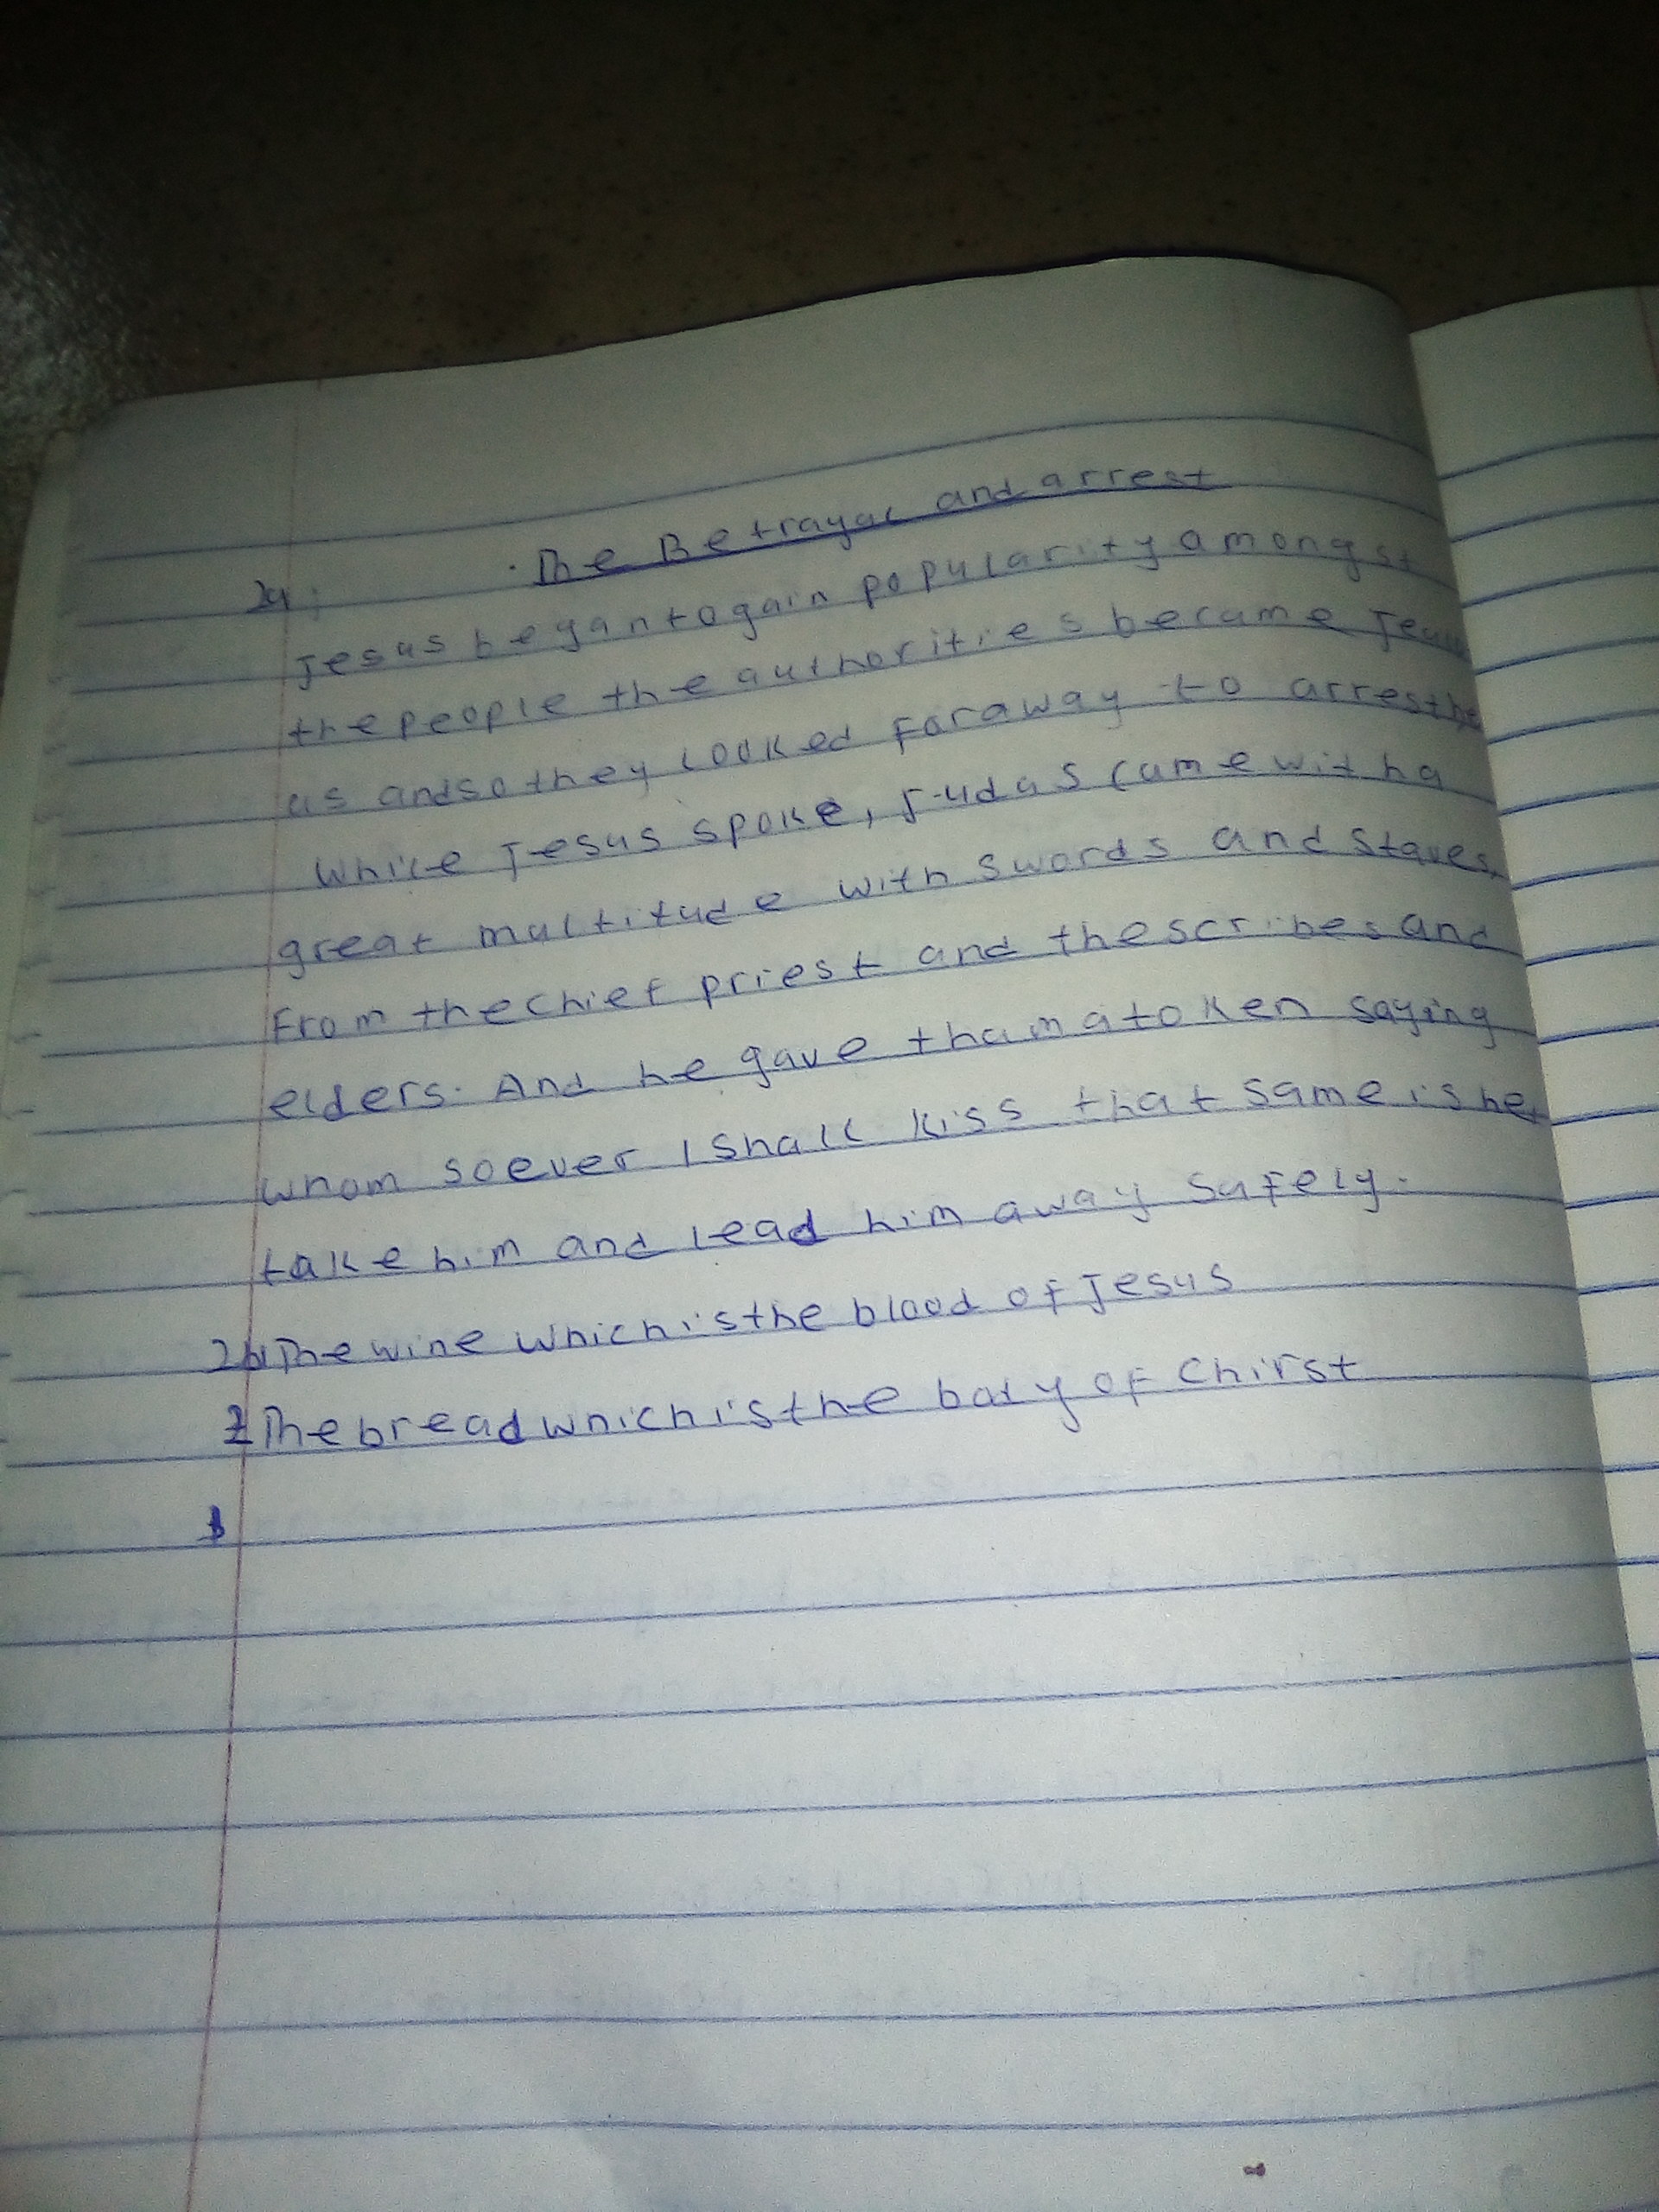 The Betrayal and arrest
2a;
Jesus began to gain popularity amongst
the people the authorities became Jealo
us and so they looked for away to arrest he
While Jesus spoke, Judas came with a
great multitude with swords and staves,
From the chief priest and the scribes and
elders. And he gave tham a token saying
whom soever I shall kiss that same is he,
take him and lead him away safely.
2b1 The wine which is the blood of Jesus
2 The bread which is the body of Chirst
1